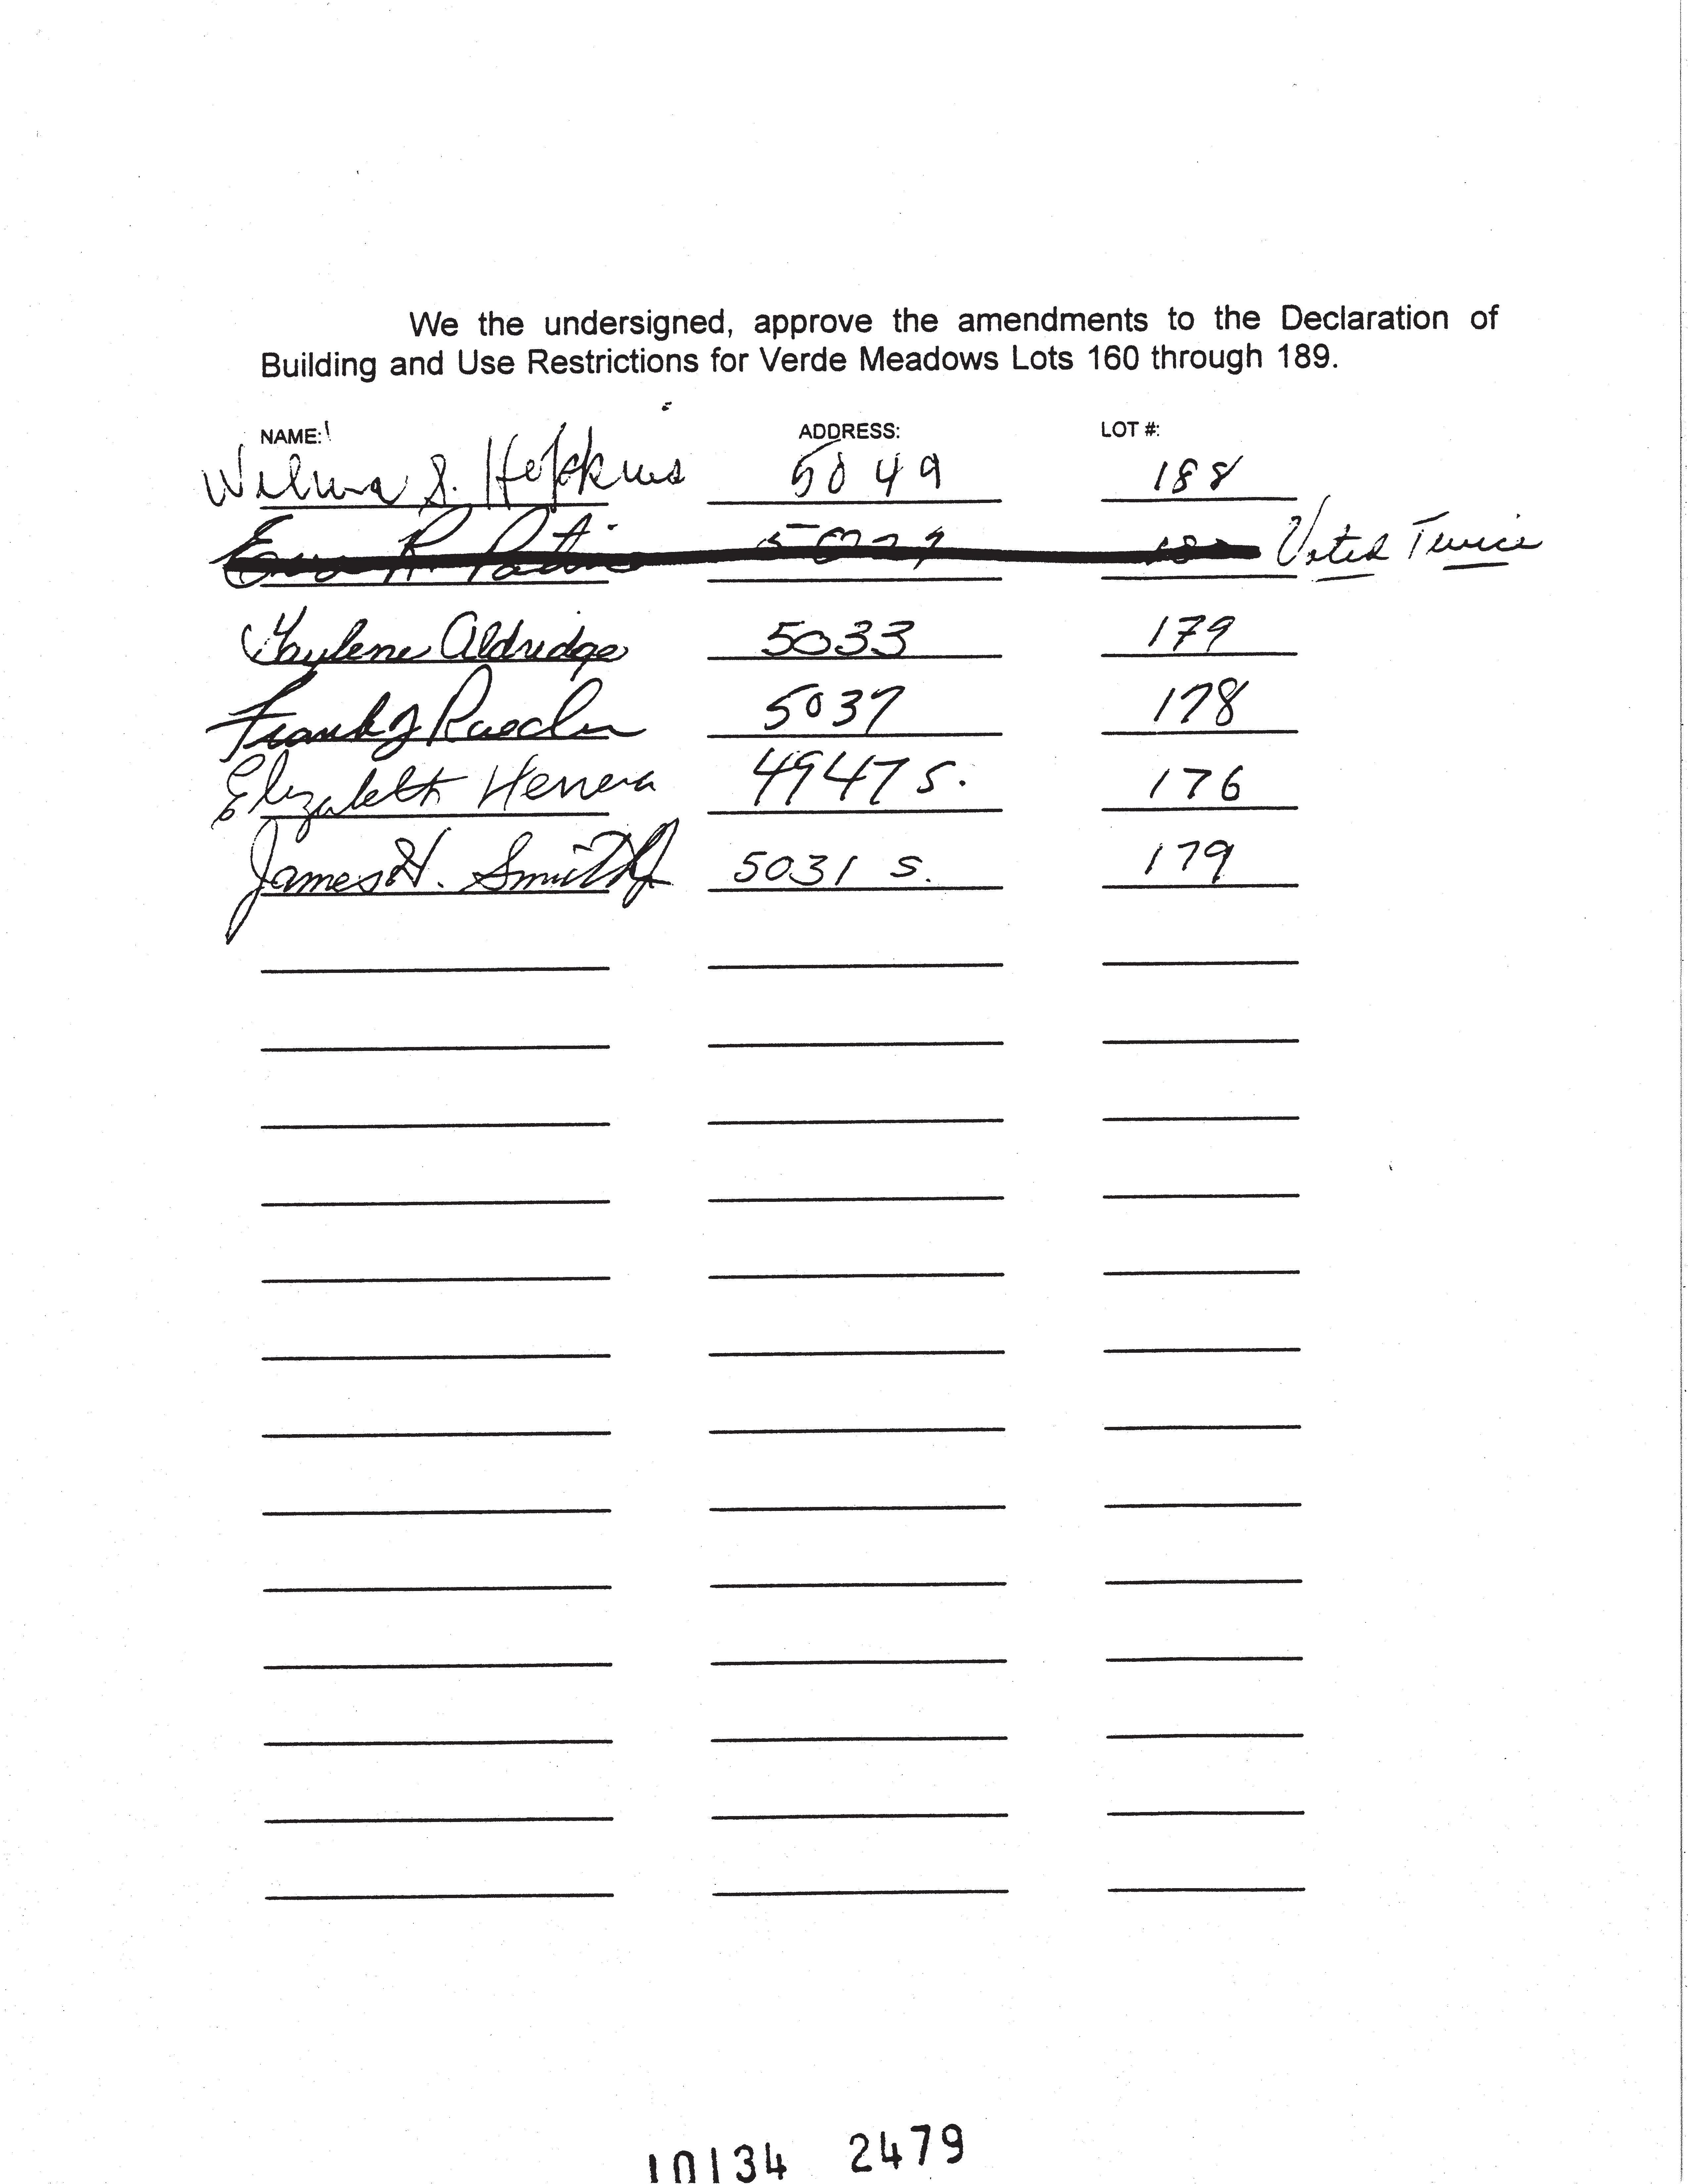 We the undersigned, approve the amendments to the Declaration of
Building and Use Restrictions for Verde Meadows Lots 160 through 189.
NAME: ADDRESS: LOT #:
Wilma S. Hopkins 5049 188
Voted Twice
Gaylene Aldridge 5033 179
Frank J 5037 178
Elizabeth Herrera 4947 S. 176
James H. Smith 5031 S. 179
10134 2479